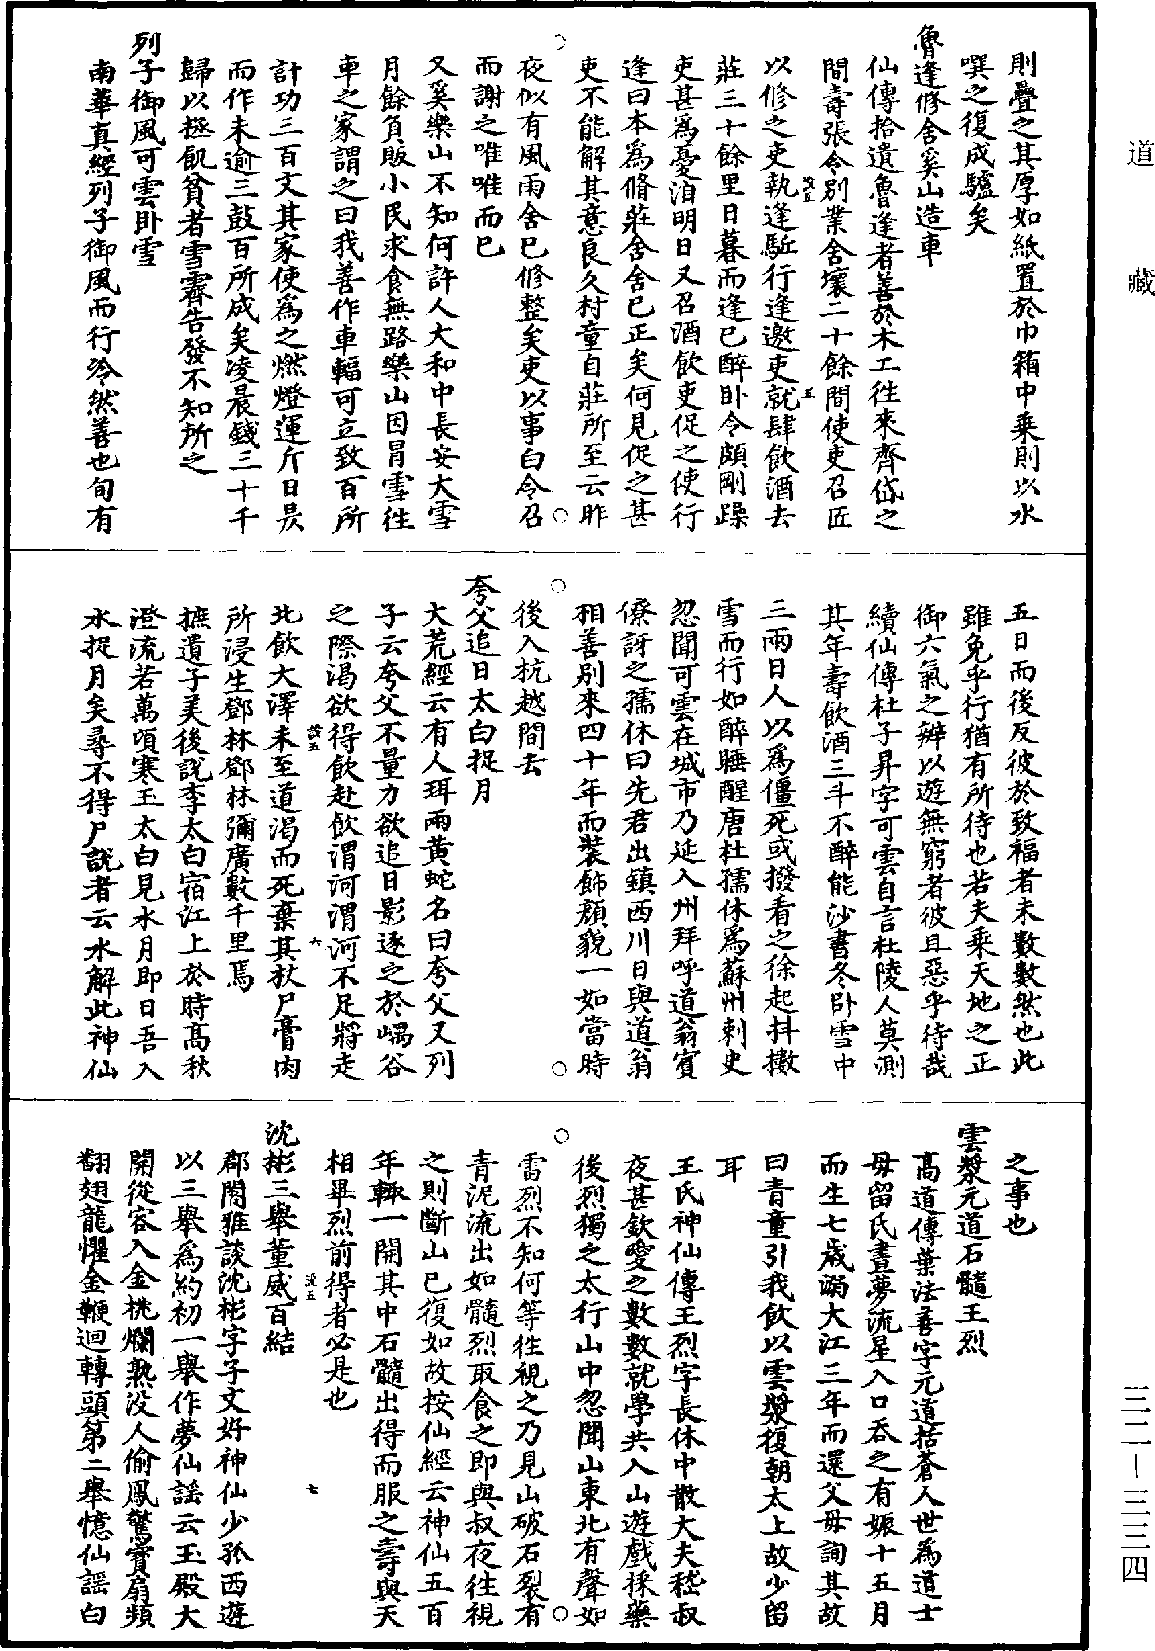 則疊之其厚如紙置於巾箱中乘則以水
噀之復成驢矣
魯逢修舍奚山造車
仙傳拾遺魯逢者善於木工徃來齊岱之
間壽張令別業舍壞二十餘間使吏召匠
以修之吏執逢駈行逢邀吏就肆飲酒去
莊三十餘里日暮而逢已醉卧令頗剛躁
吏甚爲憂洎明日又召酒飲吏促之使行
逢曰本爲脩莊舍舍已正矣何見促之甚
吏不能解其意良久村童自莊所至云昨
夜似有風雨舍已修整矣吏以事白令召
而謝之唯唯而已
又奚樂山不知何許人大和中長安大雪
月餘負販小民求食無路樂山因冐雪徃
車之家謂之曰我善作車輻可立致百所
計功三百文其家使爲之燃燈運斤日昃
而作未逾三鼓百所成矣凌晨錢三十千
歸以拯飢貧者雪霽告發不知所之
列子御風可雲卧雪
南華真經列子御風而行泠然善也旬有
五日而後反彼於致福者未數數然也此
雖免乎行猶有所待也若夫乘天地之正
御六氣之辨以遊無窮者彼且惡乎待哉
續仙傳杜子昇字可雲自言杜陵人莫測
其年壽飲酒三斗不醉能沙書冬卧雪中
三兩日人以爲僵死或撥看之徐起抖擻
雪而行如醉睡醒唐杜孺休爲蘇州刺史
忽聞可雲在城市乃延入州拜呼道翁賓
僚訝之孺休曰先君出鎮西川日與道翁
相善別來四十年而裝飾顏貌一如當時
後入杭越間去
夸父追日太白捉月
大荒經云有人珥兩黃蛇名曰夸父又列
子云夸父不量力欲追日影逐之於嵎谷
之際渴欲得飲赴飲渭河渭河不足將走
北飲大澤未至道渴而死棄其杖尸膏肉
所浸生鄧林鄧林彌廣數千里焉
摭遺子美後說李太白宿江上於時高秋
澄流若萬頃寒玉太白見水月即曰吾入
水捉月矣尋不得尸說者云水解此神仙
之事也
雲漿元道石髓王烈
高道傳葉法善字元道括蒼人世爲道士
母留氏晝夢流星入口吞之有娠十五月
而生七歲溺大江三年而還父母詢其故
曰青童引我飲以雲漿復朝太上故少留
耳
王氏神仙傳王烈字長休中散大夫嵇叔
夜甚欽愛之數數就學共入山遊戲採藥
後烈獨之太行山中忽聞山東北有聲如
雷烈不知何等徃視之乃見山破石裂有
青泥流出如髓烈取食之即與叔夜徃視
之則斷山已復如故按仙經云神仙五百
年輒一開其中石髓出得而服之壽與天
相畢烈前得者必是也
沈彬三舉董威百結
郡閣雅談沈彬字子文好神仙少孤西遊
以三舉爲約初一舉作夢仙謡云玉殿大
開從容入金桃爛熟没人偷鳳驚寶扇頻
翻翅龍懼金鞭迴轉頭第二舉憶仙謡白
道藏
三二—三三四